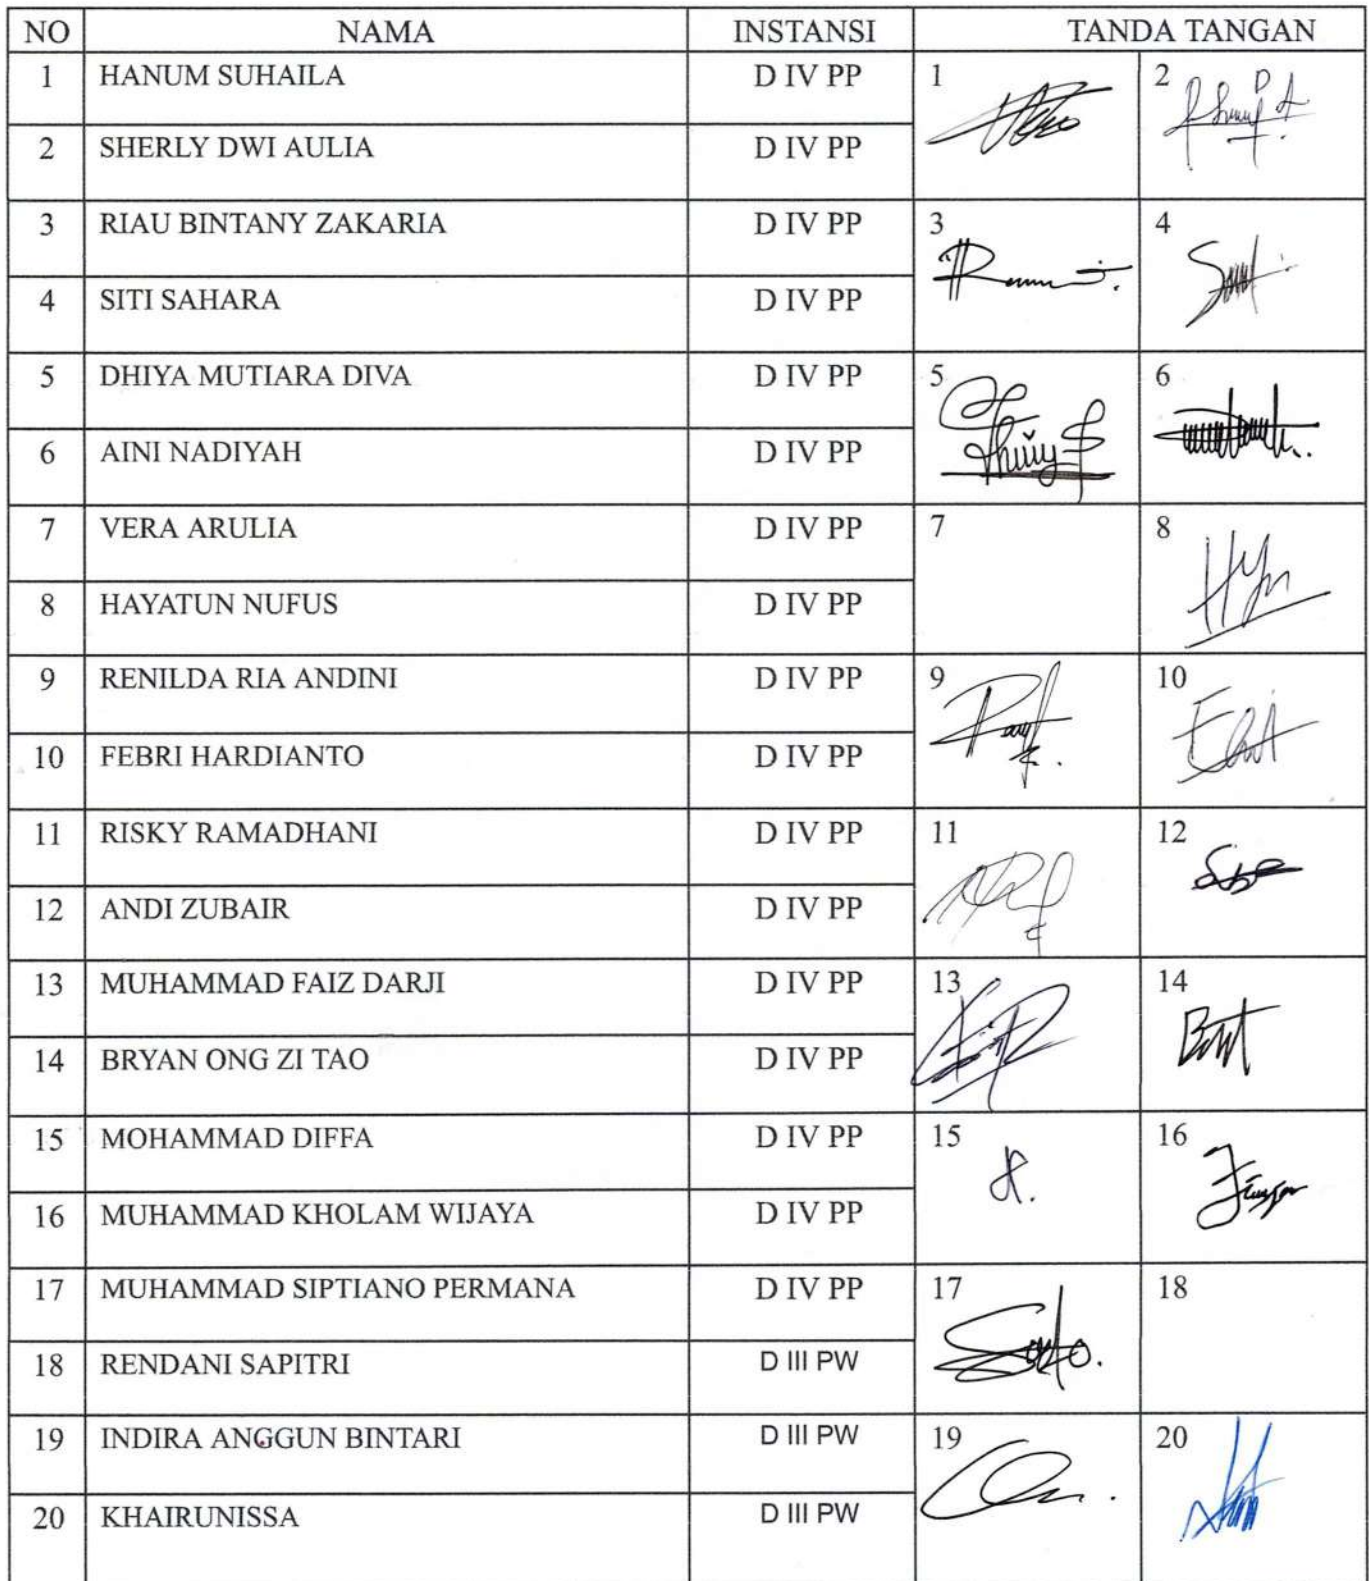 NO NAMA INSTANSI TANDA TANGAN
1 HANUM SUHAILA D IV PP 1 2
2 SHERLY DWI AULIA D IV PP
3 RIAU BINTANY ZAKARIA D IV PP 3 4
4 SITI SAHARA D IV PP
5 DHIYA MUTIARA DIVA D IV PP 5 6
6 AINI NADIYAH D IV PP
7 VERA ARULIA D IV PP 7 8
8 HAYATUN NUFUS D IV PP
9 RENILDA RIA ANDINI D IV PP 9 10
10 FEBRI HARDIANTO D IV PP
11 RISKY RAMADHANI D IV PP 11 12
12 ANDI ZUBAIR D IV PP
13 MUHAMMAD FAIZ DARJI D IV PP 13 14
14 BRYAN ONG ZI TAO D IV PP
15 MOHAMMAD DIFFA D IV PP 15 16
16 MUHAMMAD KHOLAM WIJAYA D IV PP
17 MUHAMMAD SIPTIANO PERMANA D IV PP 17 18
18 RENDANI SAPITRI D III PW
19 INDIRA ANGGUN BINTARI D III PW 19 20
20 KHAIRUNISSA D III PW